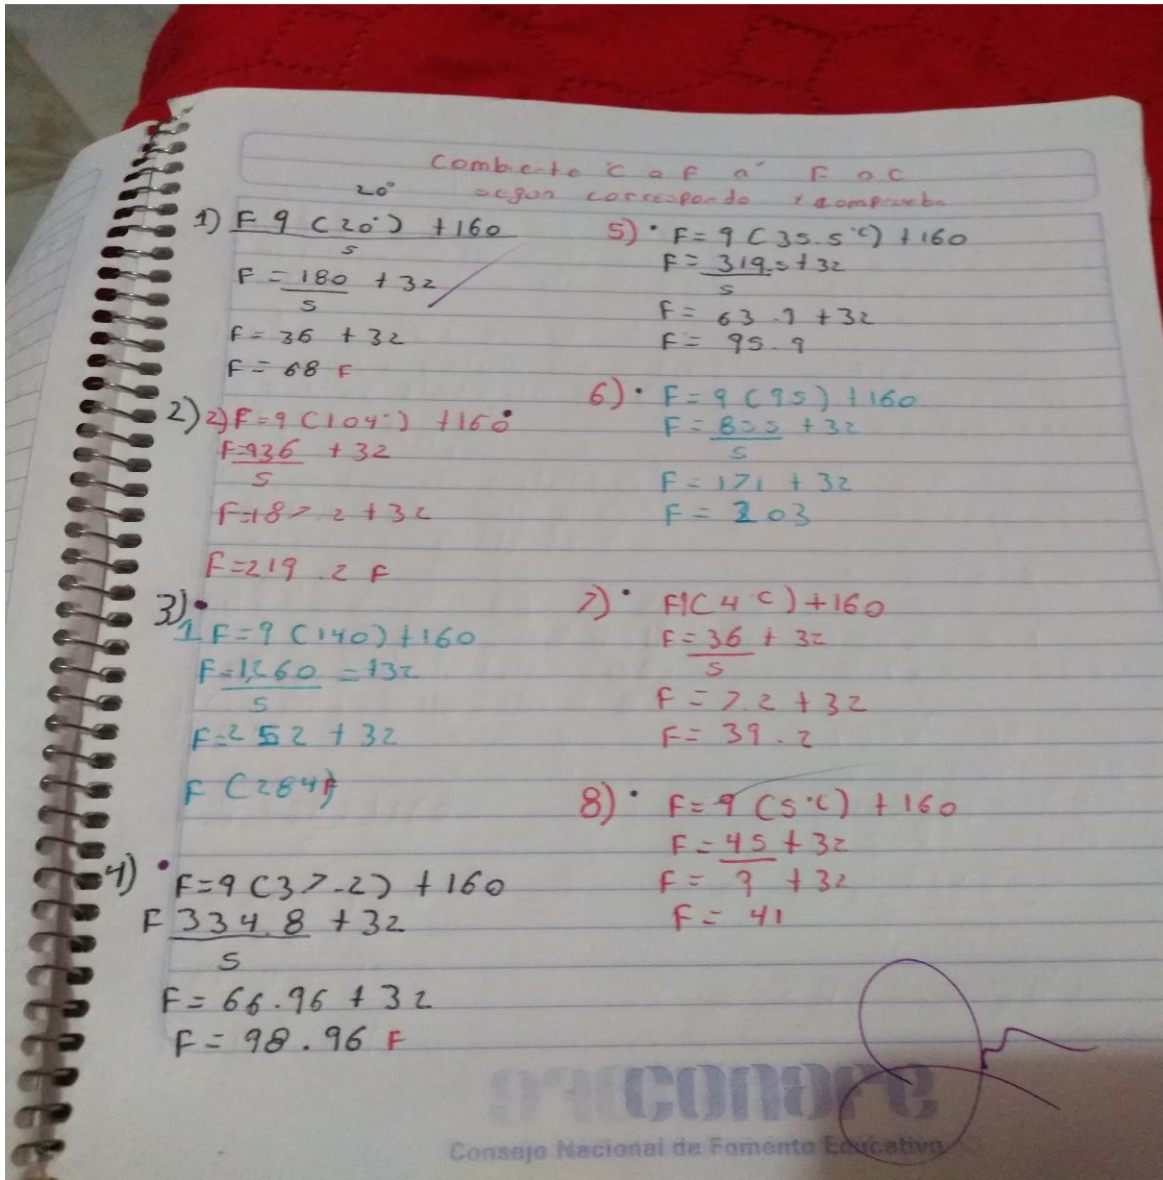 Combierte °C a F o° F a C
20° segun corresponda y comprueba
1) F 9 (20°) +160
5
F = 180 + 32
5
F = 36 + 32
F = 68 F
2) 2) F=9 (104°) +160
F=936 + 32
5
F=187.2 +32
F=219.2 F
3)
1 F=9 (140) +160
F=1,260 = +32
5
F=252 + 32
F (284F)
4) F=9 (37.2) +160
F 334.8 +32
5
F= 66.96 + 32
F= 98.96 F
5) F=9 (35.5°C) +160
F= 319.5+32
5
F= 63.9 +32
F= 95.9
6) F=9 (95) +160
F=855 + 32
5
F=171 + 32
F= 203
7) F9(4°C) +160
F=36 + 32
5
F=7.2 +32
F=39.2
8) F=9 (5°C) +160
F=45 +32
F= 9 +32
F= 41
CONAFE
Consejo Nacional de Fomento Educativo